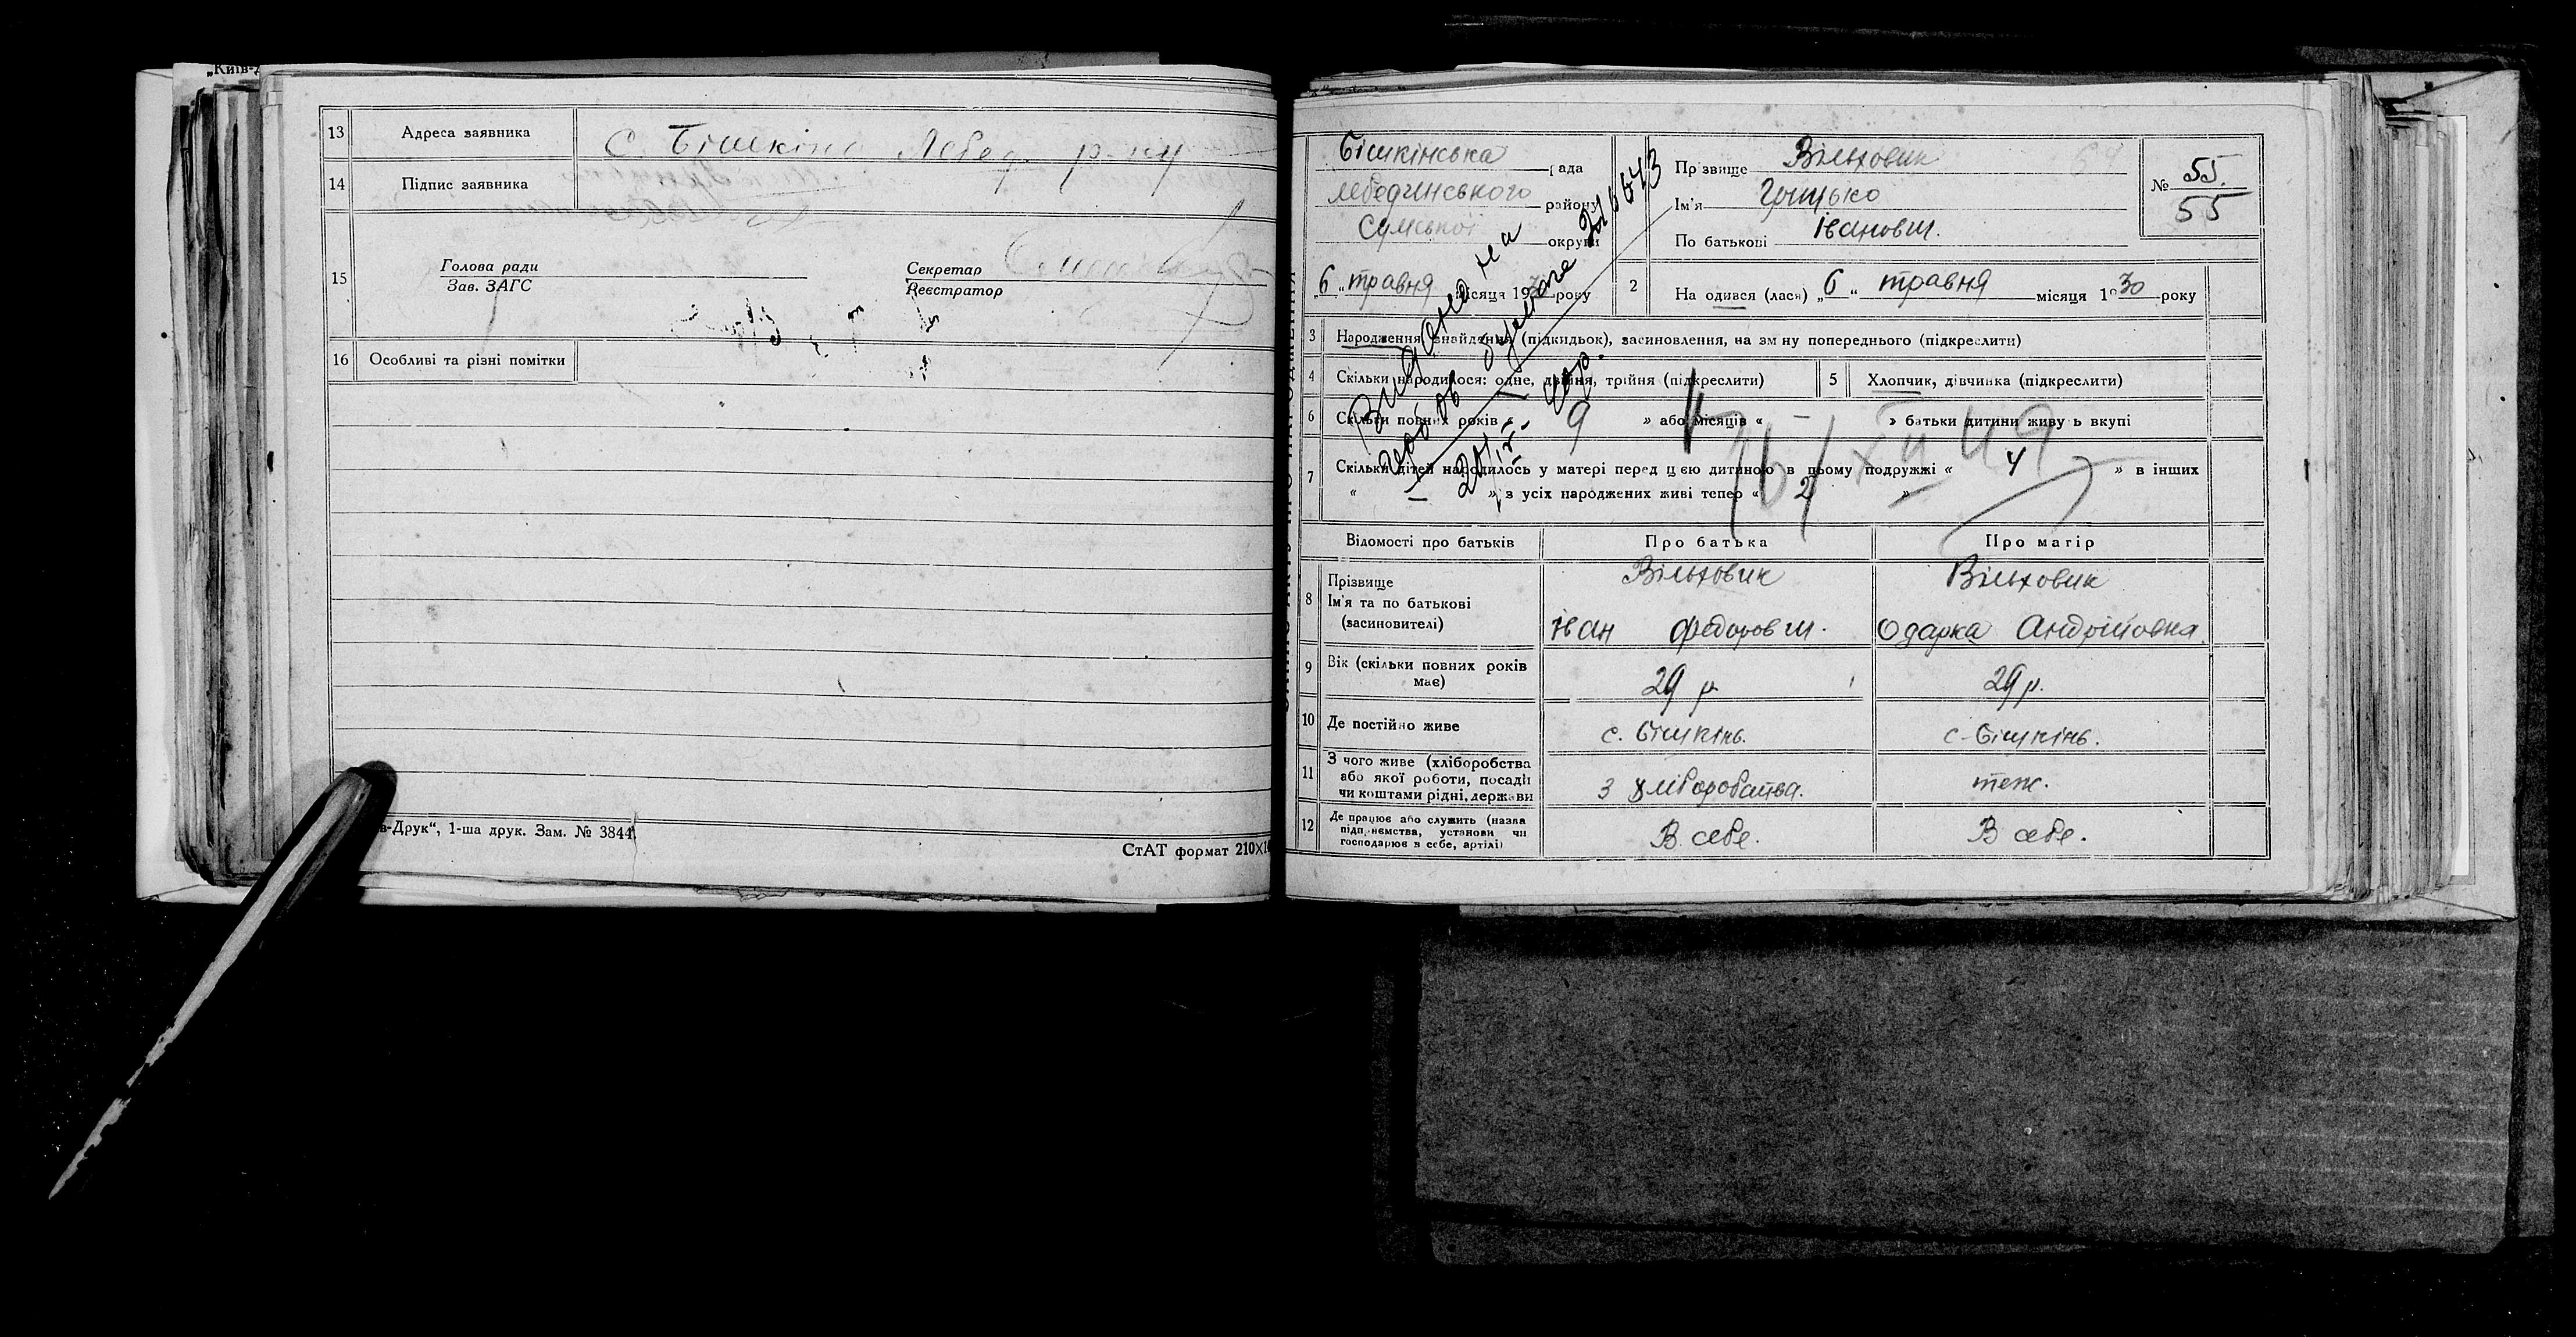 „Київ-Д
13 Адреса заявника с. Бішкінь Лебед. р-ну
14 Підпис заявника
15 Голова ради
Зав. ЗАГС
Секретар
Реєстратор
16 Особливі та різні помітки
в-Друк“, 1-ша друк. Зам. № 3844
СтАТ формат 210×1
Бішкінська рада
Лебединського району
Сумської округи
„6 “ травня місяця 1930 року
Прізвище Вільховик
Ім'я Грицько
По батькові Іванович.
№ 55.
55
2 На одився (лася) „6“ травня місяця 1930 року
3 Народження, знайдення (підкидьок), засиновлення, на зміну попереднього (підкреслити)
4 Скільки народилося: одне, двійня, трійня (підкреслити) 5 Хлопчик, дівчинка (підкреслити)
6 Скільки повних років « 9 » або місяців « » батьки дитини живуть вкупі
7 Скільки дітей народилось у матері перед цією дитиною в цьому подружжі « 4 » в інших
« — » з усіх народжених живі тепер « 2 »
Відомості про батьків Про батька Про матір
8 Прізвище Вільховик Вільховик
Ім'я та по батькові
(засиновителі) Іван Федорович. Одарка Андрійовна
9 Вік (скільки повних років має) 29 р. 29 р.
10 Де постійно живе с. Бішкінь. с. Бішкінь.
11 З чого живе (хліборобства або якої роботи, посади чи коштами рідні, держави з хліборобства. теж.
12 Де працює або служить (назва підприємства, установи чи господарює в себе, артілі) В себе. В себе.